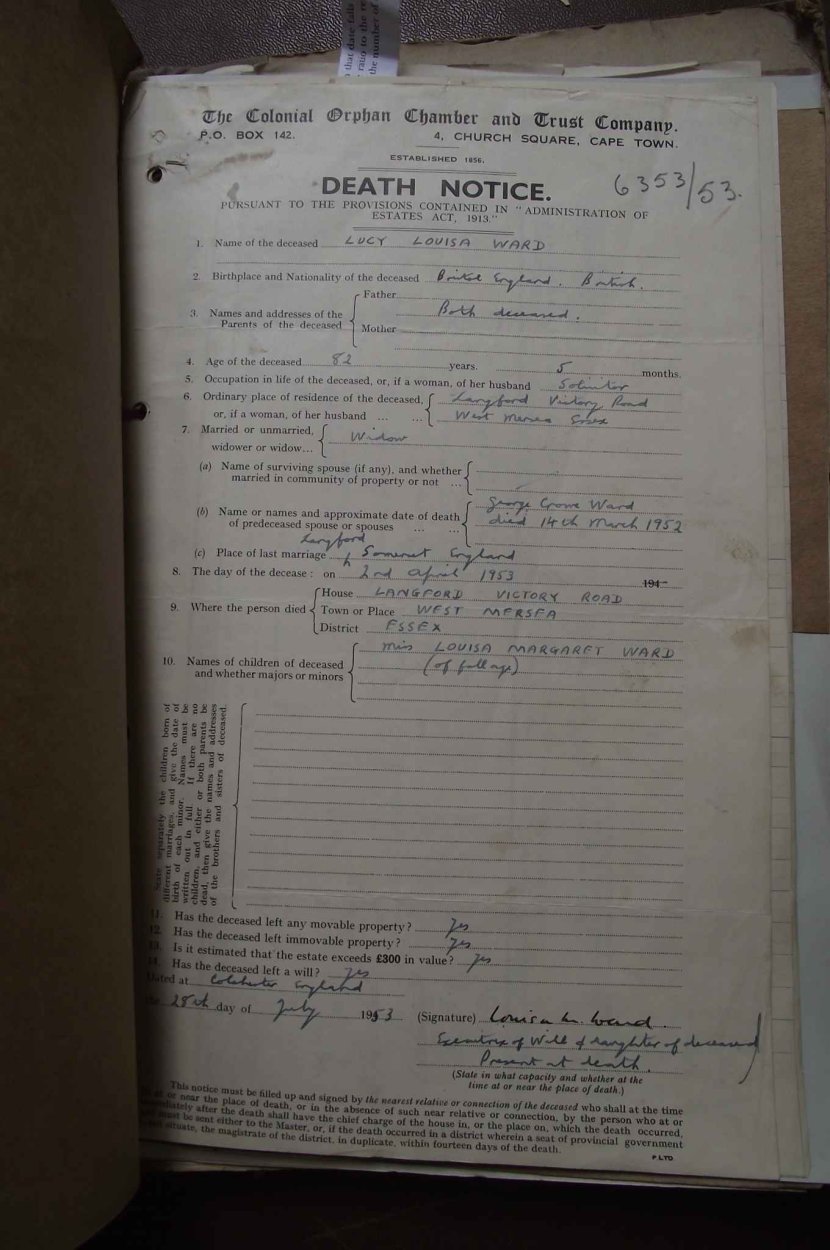 The Colonial Orphan Chamber and Trust Company.
P.O. BOX 142. 4, CHURCH SQUARE, CAPE TOWN.
ESTABLISHED 1856.
DEATH NOTICE. 6353/53.
PURSUANT TO THE PROVISIONS CONTAINED IN "ADMINISTRATION OF
ESTATES ACT, 1913."
1. Name of the deceased LUCY LOUISA WARD
2. Birthplace and Nationality of the deceased Bristol England. British.
3. Names and addresses of the Parents of the deceased
Father
Both deceased.
Mother
4. Age of the deceased 82 years. 5 months.
5. Occupation in life of the deceased, or, if a woman, of her husband Solicitor
6. Ordinary place of residence of the deceased, Langford Victory Road
or, if a woman, of her husband ... ... West Mersea Essex
7. Married or unmarried, widower or widow... Widow
(a) Name of surviving spouse (if any), and whether
married in community of property or not ...
(b) Name or names and approximate date of death George Crowe Ward
of predeceased spouse or spouses ... ... died 14th March 1952
Langford
(c) Place of last marriage Somerset England
8. The day of the decease : on 2nd April 1953 194
9. Where the person died
House LANGFORD VICTORY ROAD
Town or Place WEST MERSEA
District ESSEX
10. Names of children of deceased and whether majors or minors
Miss LOUISA MARGARET WARD
(of full age)
State separately the children born of
different marriages, and give the date of
birth of each minor. Names must be
written out in full. If there are no
children, and either or both parents be
dead, then give the names and addresses
of the brothers and sisters of deceased.
11. Has the deceased left any movable property? Yes
12. Has the deceased left immovable property? Yes
13. Is it estimated that the estate exceeds £300 in value? Yes
14. Has the deceased left a will? Yes
Dated at Colchester England
the 28th day of July 1953 (Signature) Louisa M. Ward.
Executrix of Will & daughter of deceased
Present at death.
(State in what capacity and whether at the
time at or near the place of death.)
This notice must be filled up and signed by the nearest relative or connection of the deceased who shall at the time
or near the place of death, or in the absence of such near relative or connection, by the person who at or
immediately after the death shall have the chief charge of the house in, or the place on, which the death occurred,
must be sent either to the Master, or, if the death occurred in a district wherein a seat of provincial government
situate, the magistrate of the district, in duplicate, within fourteen days of the death.
P.LTD
that date falls
ratio to the re
the number of